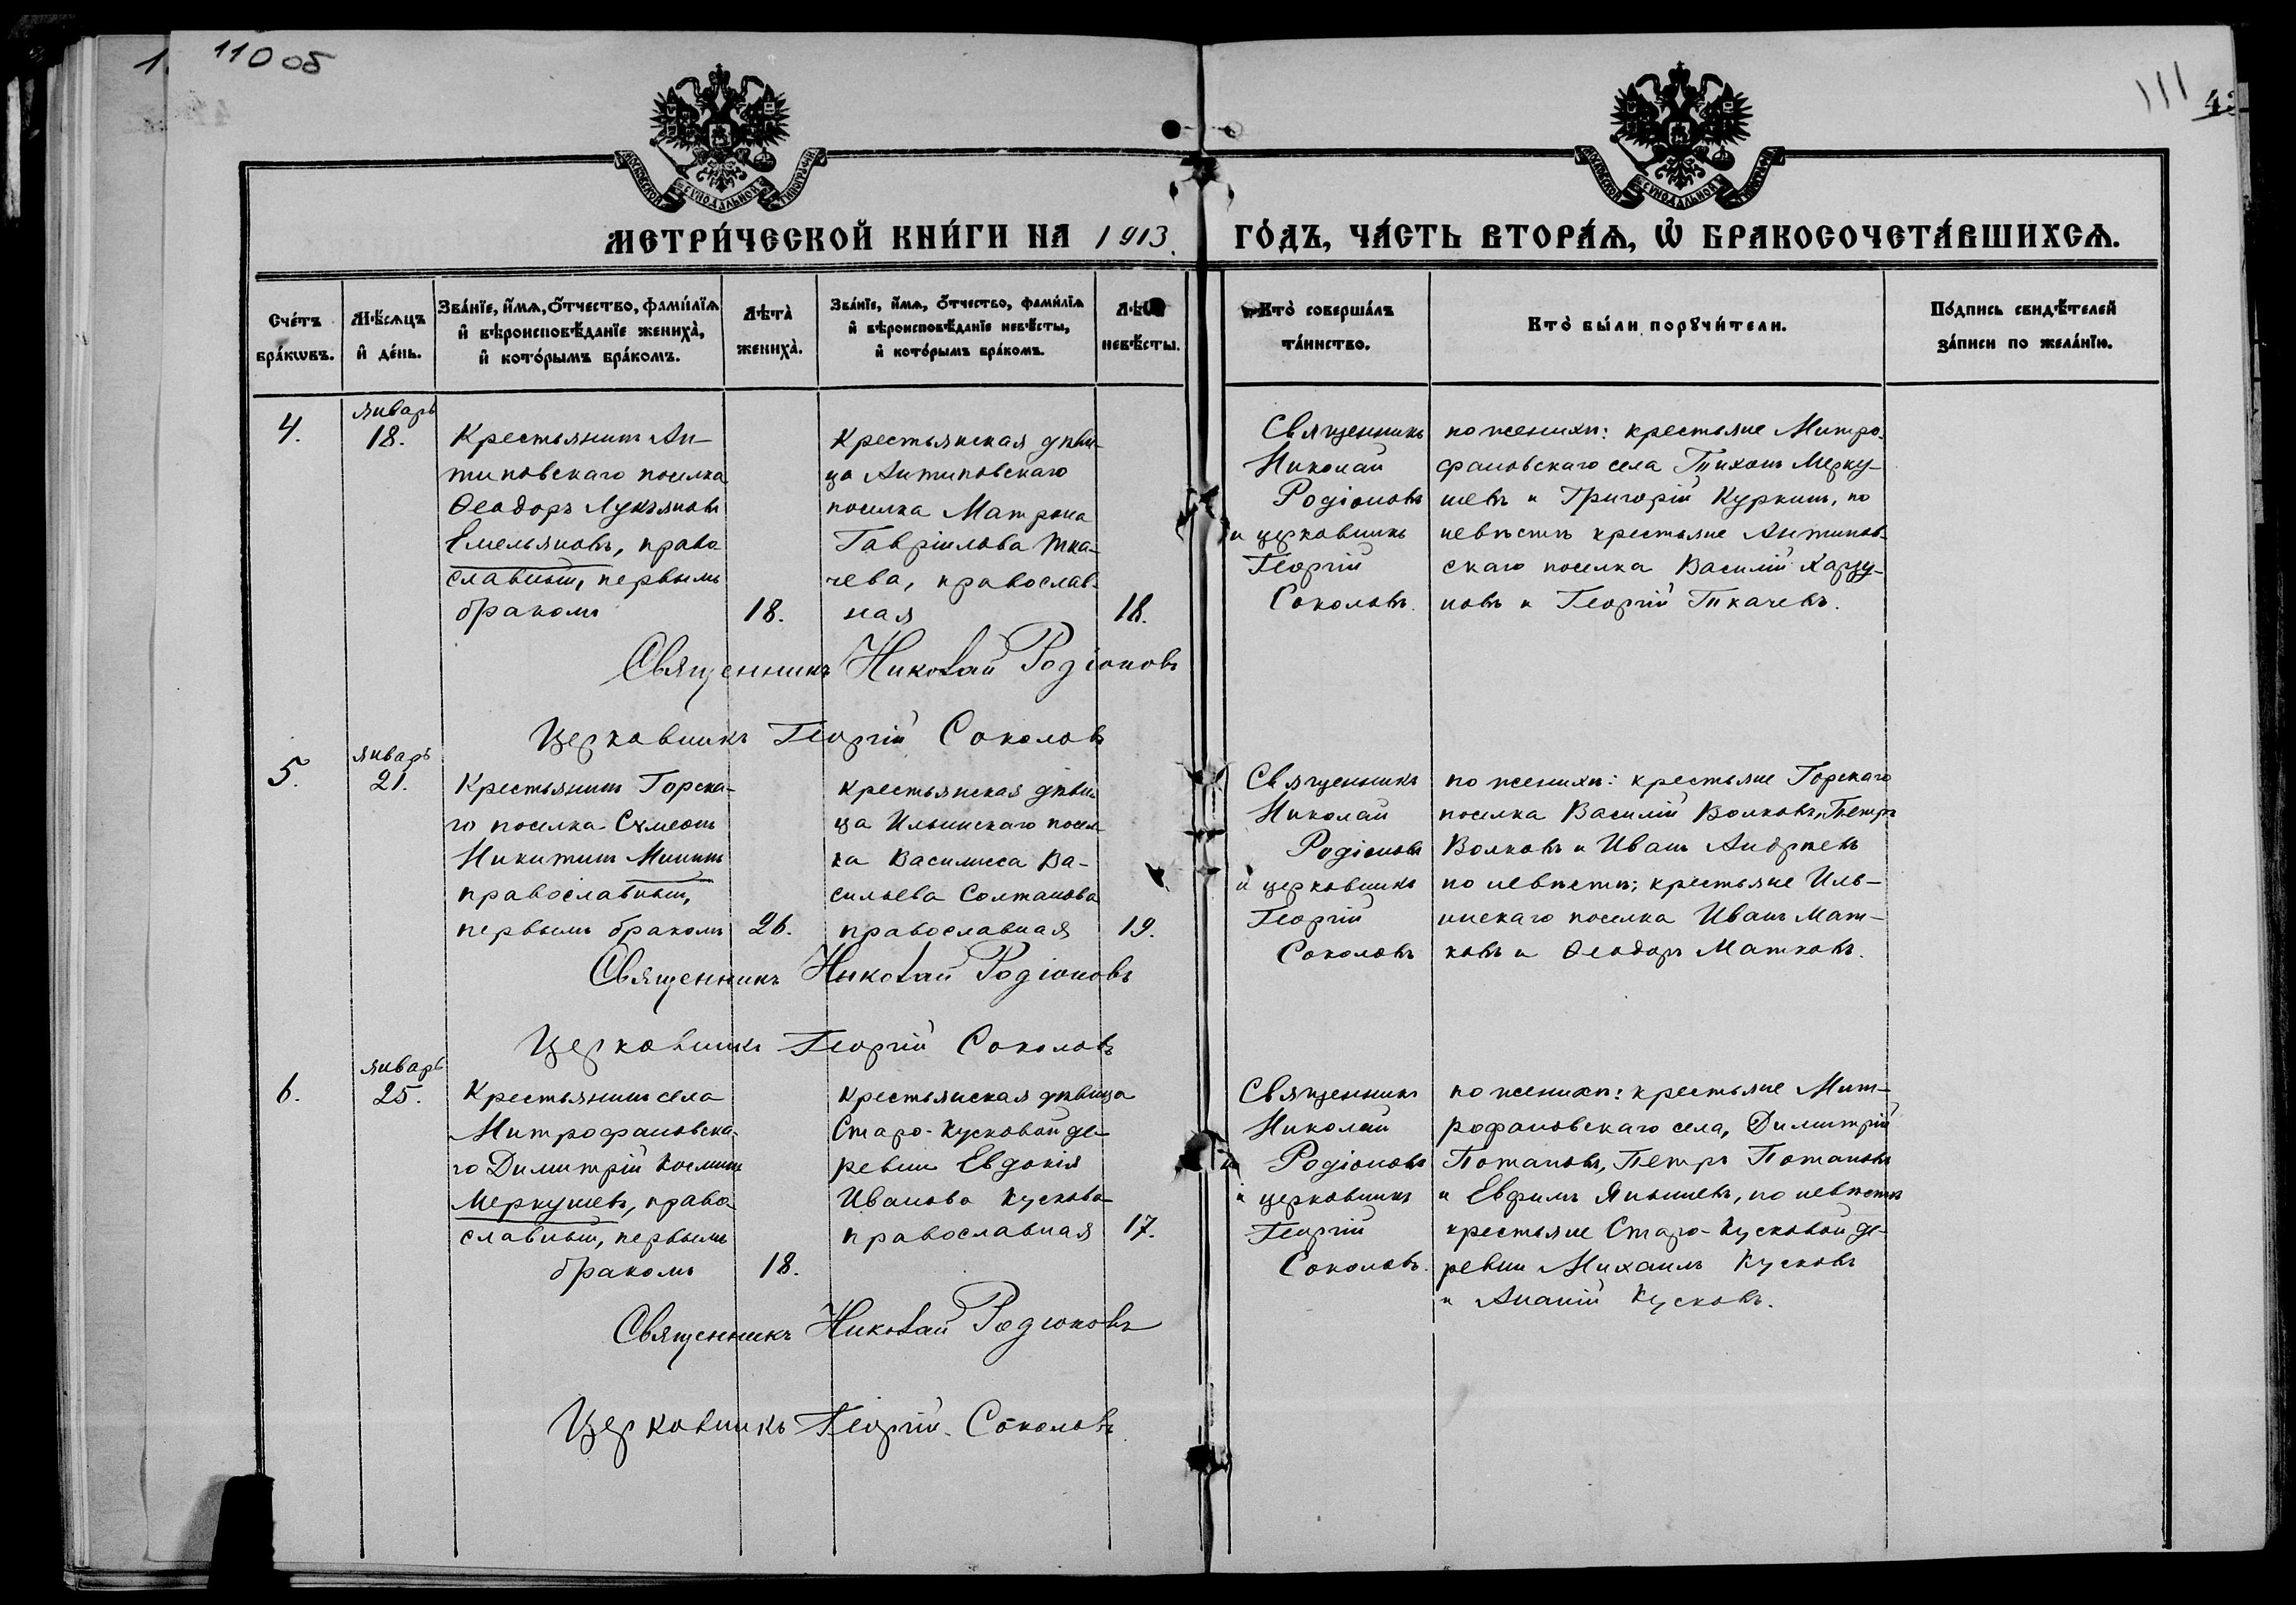 110 об
111
МОСКОВСКОЙ СѴНОДАЛЬНОЙ ТИПОГРАФІИ
МОСКОВСКОЙ СѴНОДАЛЬНОЙ ТИПОГРАФІИ
МЕТРИ́ЧЕСКОЙ КНИ́ГИ НА 1913 ГО́ДЪ, ЧА́СТЬ ВТОРА́Ѧ, Ѡ҆ БРАКОСОЧЕТА́ВШИХСѦ.
Сче́тъ
бра́кѡвъ.
Мѣ́сѧцъ
и҆ де́нь.
Зва́нїе, и҆́мѧ, ѻ҆́тчество, фами́лїѧ
и҆ вѣроисповѣ́данїе жениха̀,
и҆ кото́рымъ бра́комъ.
Лѣта̀
жениха̀.
Зва́нїе, и҆́мѧ, ѻ҆́тчество, фами́лїѧ
и҆ вѣроисповѣ́данїе невѣ́сты,
и҆ кото́рымъ бра́комъ.
невѣ́сты.
Кто̀ соверша́лъ
та́инство.
Кто̀ бы́ли порꙋчи́тели.
По́дпись свидѣ́телей
за́писи по жела́нїю.
4.
Январь
18.
Крестьянинъ Ан-
типовскаго поселка
Ѳеодоръ Лукьяновъ
Емельяновъ, право
славный, первымъ
бракомъ
18.
Крестьянская дѣви-
ца Антиповскаго
поселка Матрона
Гавріилова Тка-
чева, православ-
ная
18.
Священникъ
Николай
Родіоновъ
и церковникъ
Георгій
Соколовъ.
по женихѣ: крестьяне Митро-
фановскаго села Тихонъ Мерку-
шевъ и Григорій Куркинъ, по
невѣстѣ крестьяне Антипов-
скаго поселка Василій Харцу-
новъ и Георгій Ткачевъ.
Священникъ Николай Родіоновъ
Церковникъ Георгій Соколовъ
5.
Январь
21.
Крестьянинъ Горска-
го поселка Сѵмеонъ
Никитинъ Мининъ
православный,
первымъ бракомъ
26.
крестьянская дѣви-
ца Ильинскаго посел
ка Василиса Ва-
сильева Солтанова
православная
19.
Священникъ
Николай
Родіоновъ
и церковникъ
Георгій
Соколовъ
по женихѣ: крестьяне Горскаго
поселка Василій Волковъ, Петръ
Волковъ и Иванъ Андреевъ
по невѣстѣ; крестьяне Иль-
инскаго поселка Иванъ Мат-
ковъ и Ѳеодоръ Матковъ.
Священникъ Николай Родіоновъ
Церковникъ Георгій Соколовъ
6.
Январь
25.
Крестьянинъ села
Митрофановска-
го Димитрій Косминъ
Меркушевъ, право
славный, первымъ
бракомъ
18.
крестьянская дѣвица
Старо-Кусковой де-
ревни Евдокія
Иванова Кускова
православная
17.
Священникъ
Николай
Родіоновъ
и церковникъ
Георгій
Соколовъ.
по женихѣ: крестьяне Мит-
рофановскаго села, Димитрій
Потаповъ, Петръ Потаповъ
и Евфимъ Янышевъ, по невѣстѣ
крестьяне Старо-Кусковой де-
ревни Михаилъ Кусковъ
и Ананій Кусковъ.
Священникъ Николай Родіоновъ
Церковникъ Георгій Соколовъ